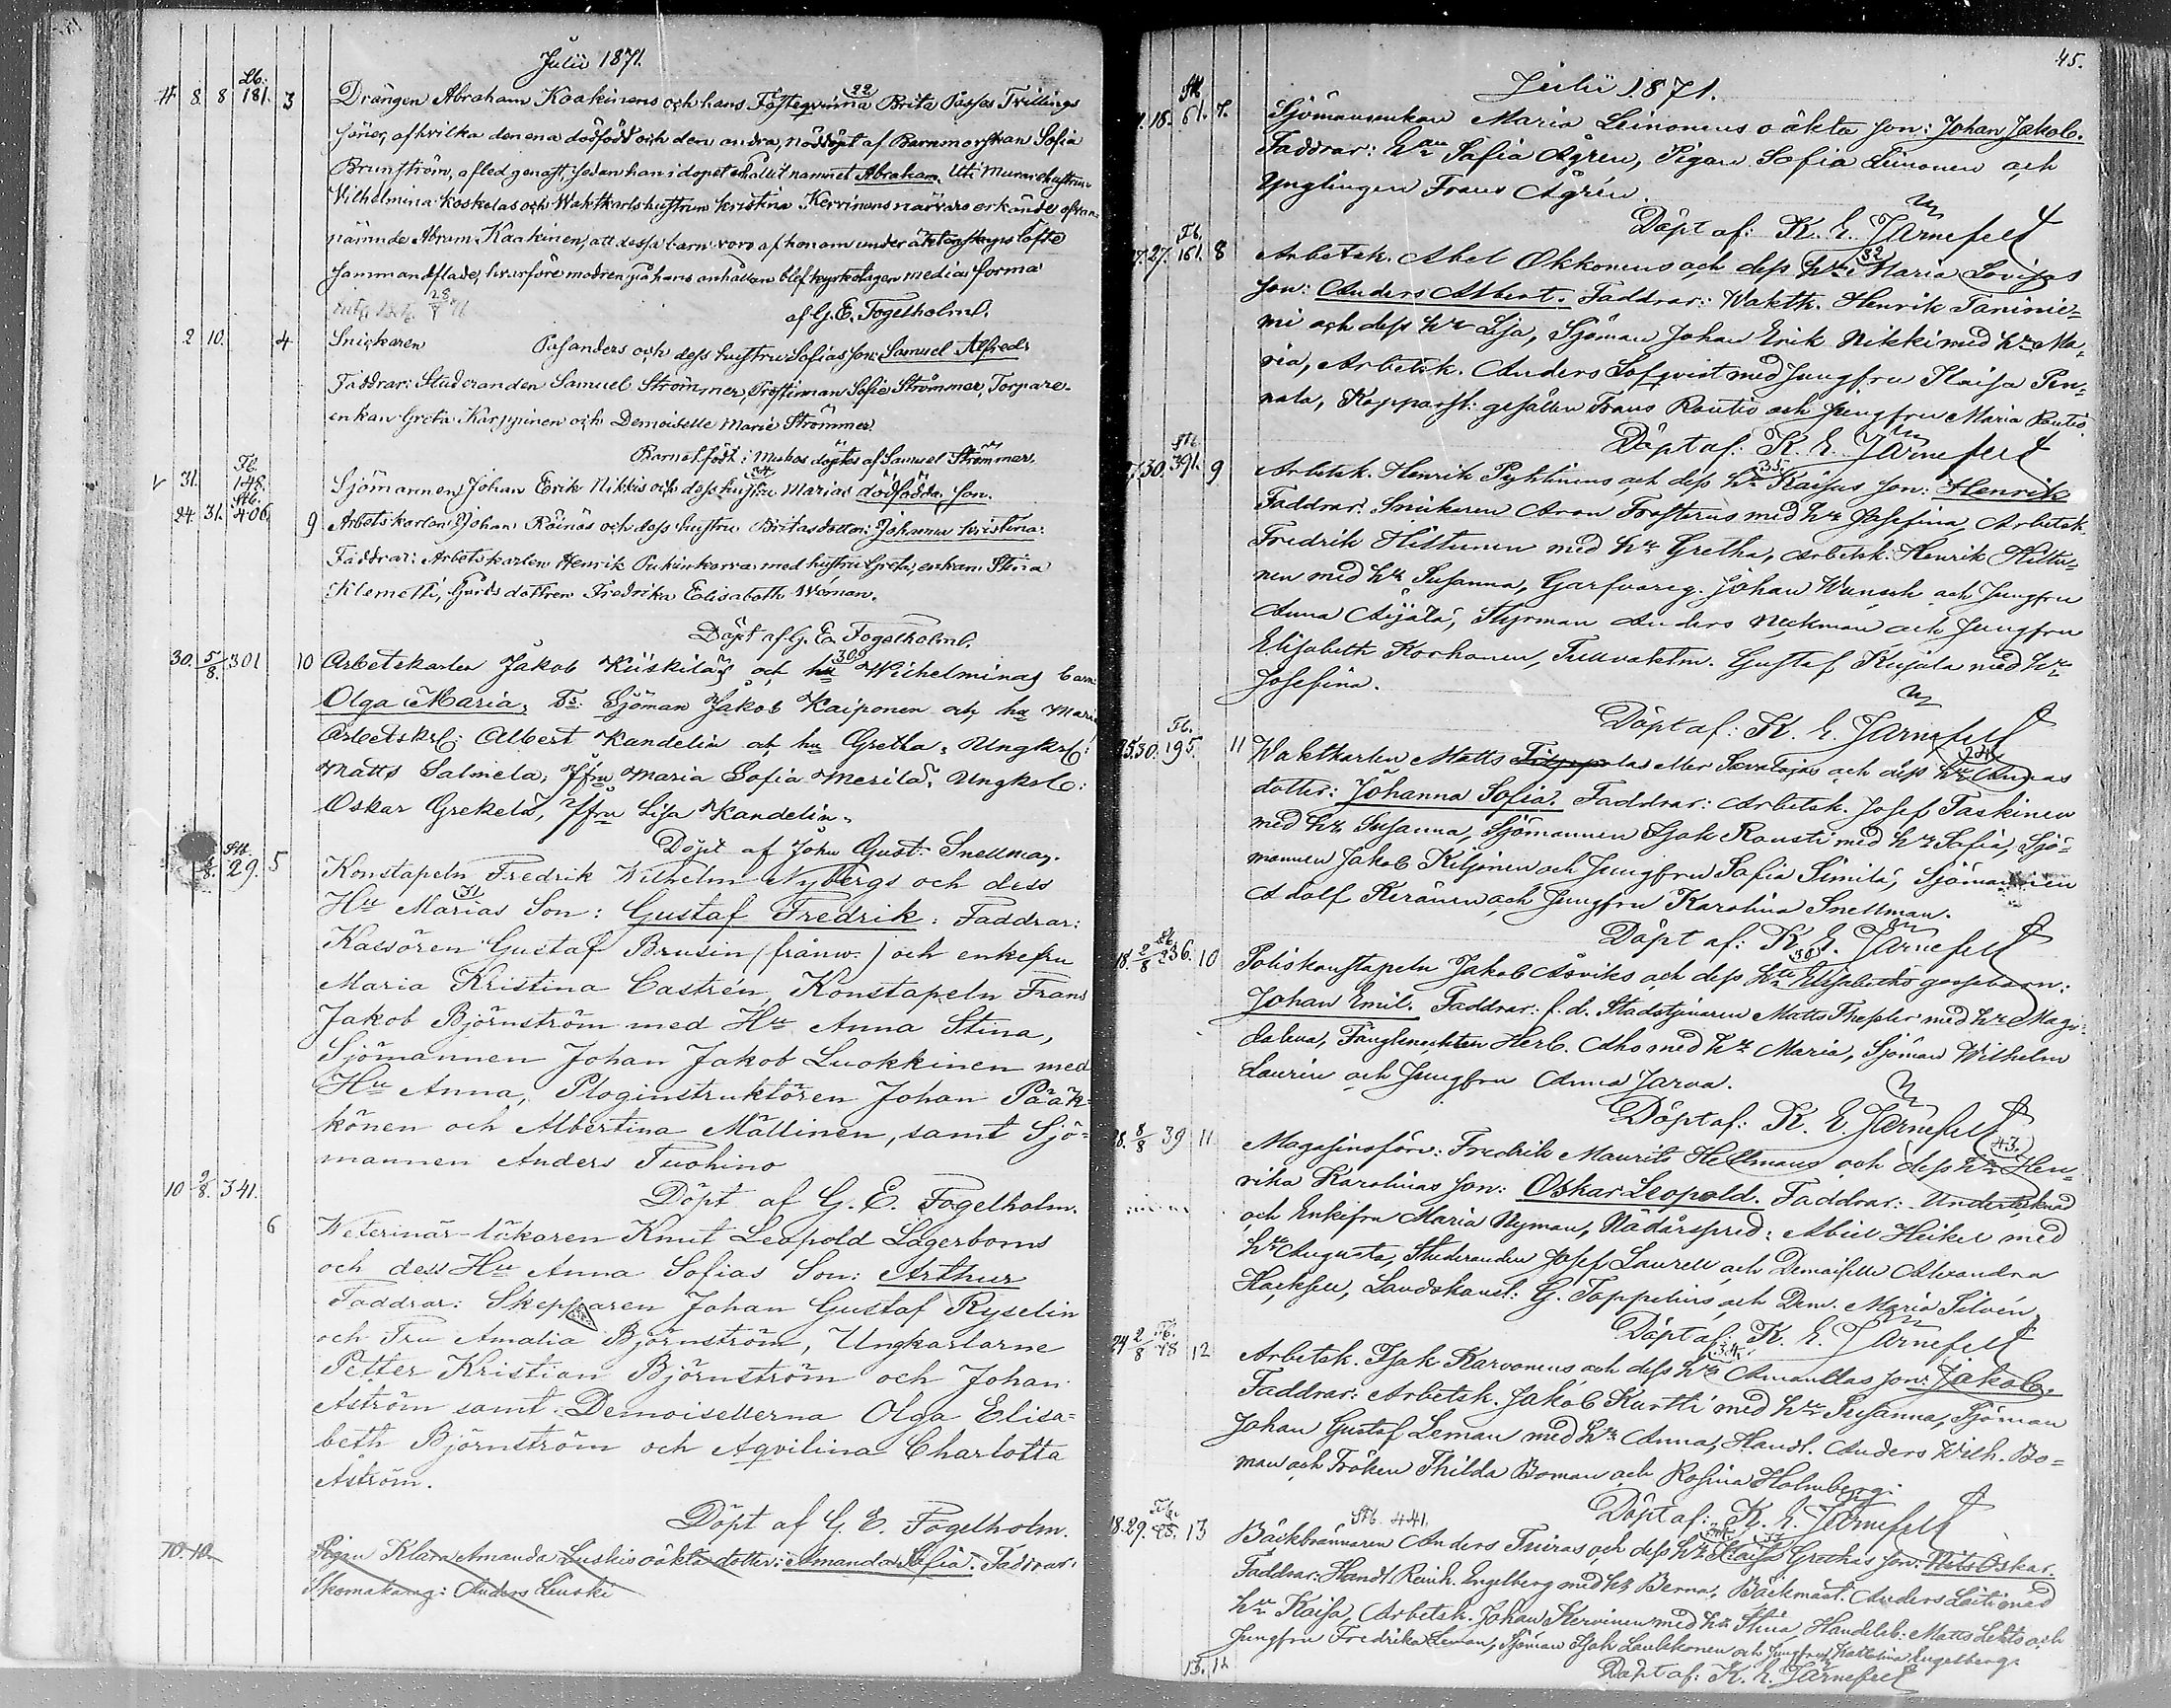 Julii 1871.
8. 8 Lb. 181. 3 Drängen Abraham Kaakinens och hans Fästeqvinna 22 Brita Tvillings
söner, af hvilka den ena dödfödd och den andra, nöddöpt af Barnmorskan Sofia
Brunström, afled genast, sedan han i dopet erhållit namnet Abraham. Uti
Vilhelmina Koskelas och Waktkarls hustrun Kristina Kervinens närvaro erkände
nämnde Abram Kaakinen, att dessa barn voro af honom under äktenskaps löfte
sammanaflade, hvarföre modren på hans anhållan blef kyrkotagen
af G. E. Fogelholm.
2 10. 4 Snickaren och dess hustru Sofias son: Samuel Alfred.
Faddrar: Studeranden Samuel Strömmer, Sofie Strömmer, Torpare-
enkan Greta Karppinen och Demoiselle Marie Strömmer.
Barnet födt i Muhos döptes af Samuel Strömmer.
31. Fb. 148. Sjömannen Johan Erik Nikkis och dess hustru Marias dödfödda son.
24. 31. 406. 9 Arbetskarlen Johan Räinäs och dess hustru Britas dotter: Johanna Kristina.
Faddrar: Arbetskarlen Henrik med hustru Greta, enkan Stina
Klemetti, dottren Fredrika Elisabeth Wöman.
Döpt af G. E. Fogelholm.
30. 5/8. 301 10 Arbetskarlen Jakob Kiiskiläs och hu 300 Wilhelminas barn:
Olga Maria, Fr: Sjöman Jakob Kaiponen och hu Maria
Arbetskrl: Albert Kandelin och hu Gretha, Ungkrl:
Matts Salmela, Jfru Maria Sofia Merilä, Ungkrl:
Oskar Grekelä, Jfru Lisa Kandelin.
Döpt af John Gust. Snellman.
8. 29. 5 Konstapeln Fredrik Wilhelm Nybergs och dess
Hu 31 Marias Son: Gustaf Fredrik. Faddrar:
Kassören Gustaf Brusin (frånw.) och enkefru
Maria Kristina Castrén, Konstapeln Frans
Jakob Björnström med Hu Anna Stina,
Sjömannen Johan Jakob Luokkinen med
Hu Anna, Ploginstruktören Johan Pääk-
könen och Albertina Mällinen, samt Sjö-
mannen Anders Tuohino
10 2/8. 341. Döpt af G. E. Fogelholm.
6 Veterinär-läkaren Knut Leopold Lagerboms
och dess Hu Anna Sofias Son: Arthur
Faddrar: Skepparen Johan Gustaf Ryselin
och Fru Amalia Björnström, Ungkarlarne
Petter Kristian Björnström och Johan
Åström samt Demoisellerna Olga Elisa-
beth Björnström och Aqvilina Charlotta
Åström.
Döpt af G. E. Fogelholm.
10. 10. Pigan Klara Amanda Luskis oäkta dotter: Amanda Sofia. Faddrar:
Skomakareg: Anders Luuski
45.
Julii 1871.
18. 61. 7. Sjömansenkan Maria Leinonens oäkta son: Johan Jakob.
Faddrar: Sofia Ågren, Pigan Sofia Leinonen och
Ynglingen Frans Ågrén.
Döpt af: K. E. Järnefelt
27. Fb. 161. 8 Arbetsk. Abel Okkonens och dess hru 32 Maria Lovisas
son: Anders Albert. Faddrar: Waktk. Henrik Taninie-
mi och dess hru Lisa, Sjöman Johan Erik Nikki med hru Ma-
ria, Arbetsk. Anders Lofqvist med Jungfru Kaisa Pen-
nala, Kopparsl: gesällen Frans Rautio och Jungfru Maria Rautio
Döpt af: K. E. Järnefelt
30. 391. 9 Arbetsk. Henrik Pyhtinens och dess hru 35 Kaisas son: Henrik
Faddrar: Snickaren Aron Frosterus med hru Josefina, Arbetsk.
Fredrik Hiltunen med hru Gretha, Arbetsk. Henrik Hiltu-
nen med hru Susanna, Garfvareg. Johan Wunsch och Jungfru
Anna Äijälä, Styrman Anders Neckman och Jungfru
Elisabeth Korhonen, Tullvaktm. Gustaf Kujala med hru
Josefina.
Döpt af: K. E. Järnefelt
25. 30. Fb. 195. 11 Waktkarlen Matts eller Savolajas och dess hru 24 Annas
dotter: Johanna Sofia. Faddrar: Arbetsk. Josef Taskinen
med hru Susanna, Sjömannen Isak Rousti med hru Sofia, Sjö-
mannen Jakob Kiljonen och Jungfru Sofia Similä, Sjömannen
Adolf Keränen och Jungfru Karolina Snellman.
Döpt af: K. E. Järnefelt
18. 2/8 236. 10 Poliskonstapeln Jakob Åsviks och dess hru 30 Elisabeths gossebarn:
Johan Emil. Faddrar: f. d. Stadstjenaren Matts Thesler med hru Mag-
dalena, Fångknechten Herb. Aho med hru Maria, Sjöman Wilhelm
Laurin och Jungfru Anna Jarva.
Döpt af: K. E. Järnefelt
28. 8/8 39 11 Magasinsförv: Fredrik Maurits Hellmans och dess hru 43 Hen-
rika Karolinas son: Oskar Leopold. Faddrar: Undertecknad
och Enkefru Maria Nyman, Nådårspred: Abiel Heikel med
hru Augusta, Studeranden Josef Laurell och Demoiselle Alexandra
Hacksell, Landskansl: G. Toppelius och Dem. Maria Silvén
Döpt af: K. E. Järnefelt
24 2/8 Fb. 78 12 Arbetsk. Isak Karvonens och dess hru 34 Amandas son: Jakob.
Faddrar: Arbetsk. Jakob Kurtti med hru Susanna, Sjöman
Johan Gustaf Leman med hru Anna, Handl. Anders Wilh. Bo-
man och Fröken Thilda Boman och Rosina Holmberg.
Döpt af: K. E. Järnefelt
18. 29. 13 Stb. 441. Bäckbrännaren Anders och dess hru Kaisa Grethas son: Nils Oskar.
Faddrar: Handl. Reinh. Engelberg med hru Berna, Bäckmäst. Anders Laiti med
hru Kaisa, Arbetsk. Johan Kervinen med hru Stina, Handelsb: Matts Lehto och
Jungfru Fredrika Leman, Sjöman Isak Laukkonen och Jungfru Katharina Engelberg.
13. 12 Döpt af: K. E. Järnefelt